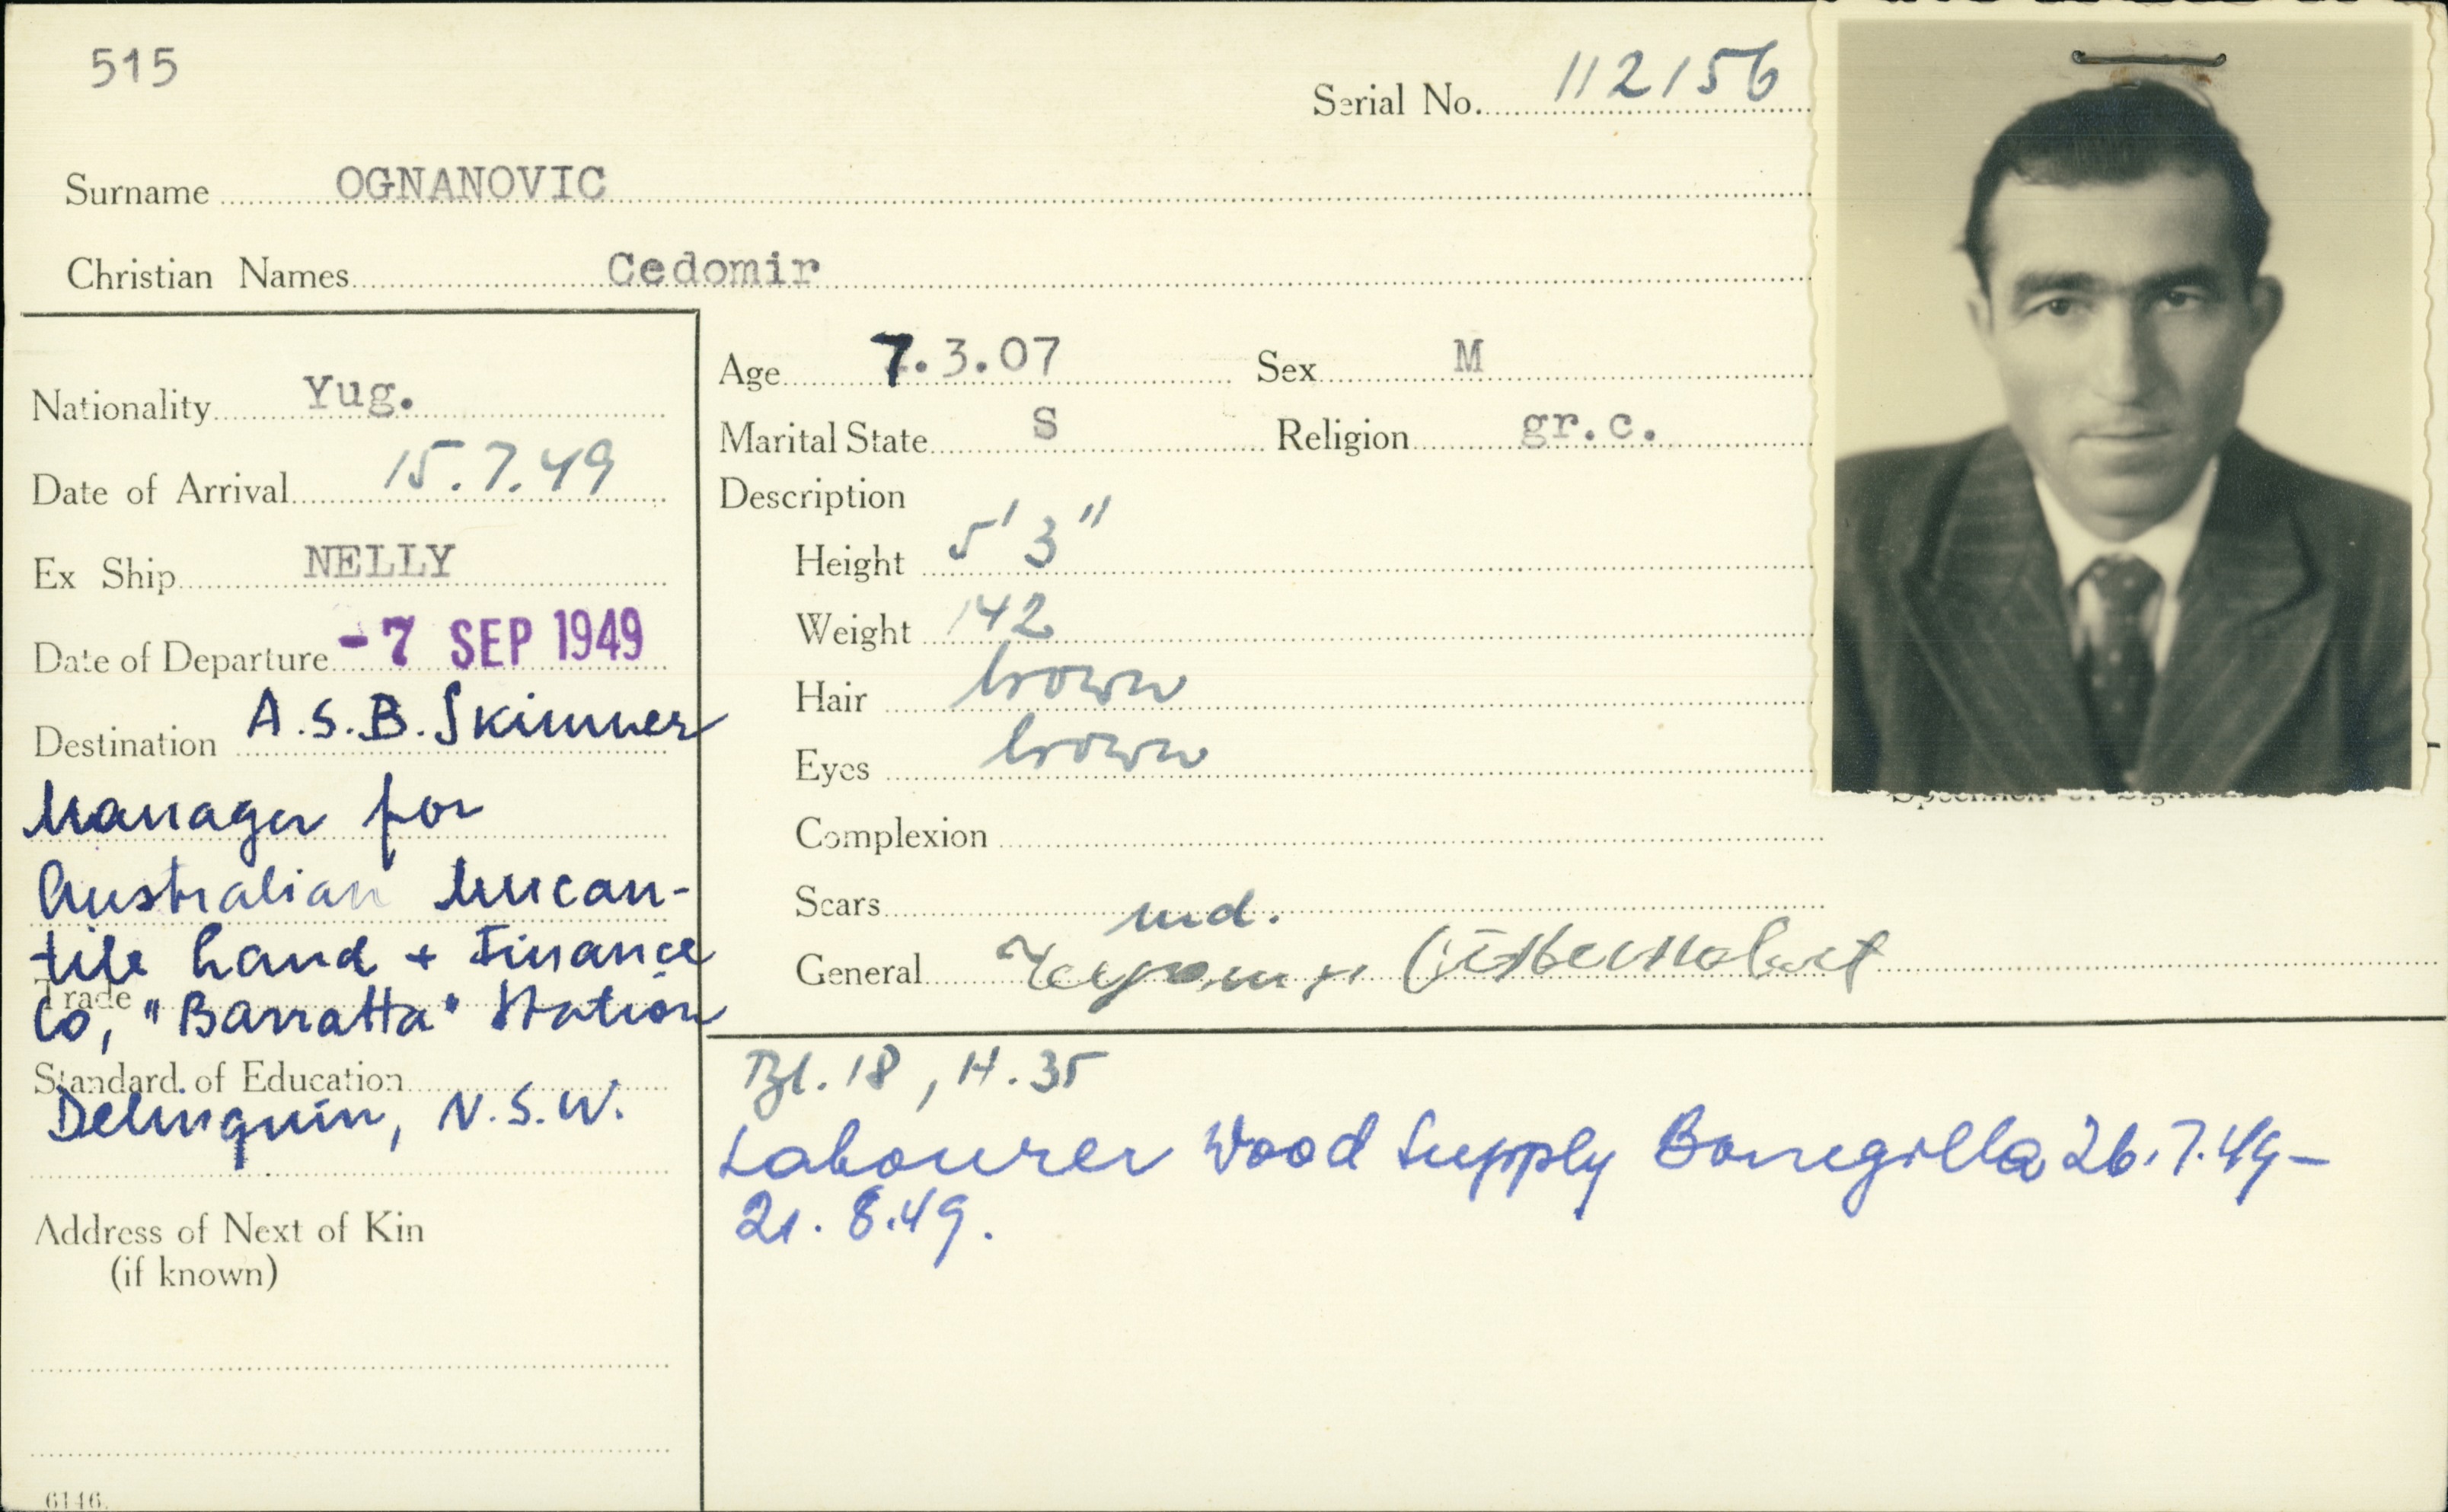 515
Serial No. 112156
Surname OGNANOVIC
Christian Names Cedomir
Nationality Yug.
Date of Arrival 15.7.49
Ex Ship NELLY
Date of Departure -7 SEP 1949
Destination A.S.B. Skinner
Manager for
Australian Mercan-
tile Land + Finance
Trade
Co, "Barratta" Station
Standard of Education
Deliniquin, N.S.W.
Address of Next of Kin
(if known)
6146.
Age 7.3.07 Sex M
Marital State S Religion gr.c.
Description
Height 5' 3"
Weight 142
Hair brown
Eyes brown
Complexion
Scars
General
Specimen of
Bl. 18, H. 35
Labourer Wood Supply Bonegilla 26.7.49 –
21.8.49.